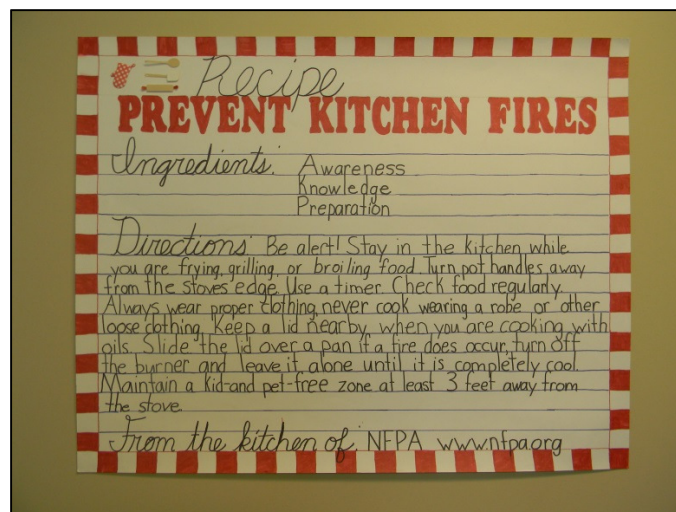 Recipe
PREVENT KITCHEN FIRES
Ingredients: Awareness
Knowledge
Preparation
Directions: Be alert! Stay in the kitchen while
you are frying, grilling, or broiling food. Turn pot handles away
from the stoves edge. Use a timer. Check food regularly.
Always wear proper clothing, never cook wearing a robe or other
loose clothing. Keep a lid nearby when you are cooking with
oils. Slide the lid over a pan if a fire does occur, turn off
the burner and leave it alone until it is completely cool.
Maintain a kid-and pet-free zone at least 3 feet away from
the stove.
From the kitchen of: NFPA www.nfpa.org